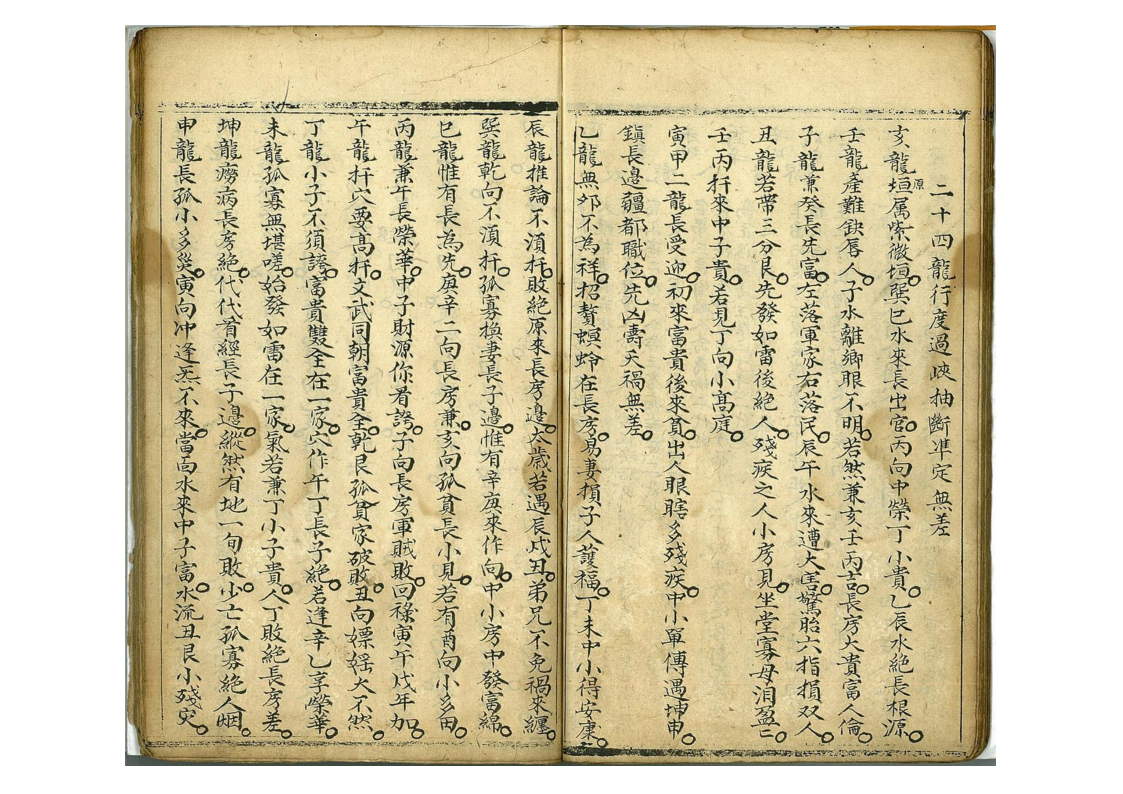 二十四龍行度過峽抽斷準定無差
亥龍垣原属紫微垣巽巳水來長出官丙向中榮丁小貴乙辰水絶長根源
壬龍產難缺唇人子水離鄉眼不明若然兼亥壬丙吉長房大貴富人倫
子龍兼癸長先富左落軍家右落民辰午水來遭大害驚胎六指損双人
丑龍若帶三分艮先發如雷後絶人殘疾之人小房見坐堂寡母泪盈〻
壬丙扦來中子貴若見丁向小髙庭
寅甲二龍長受迎初來富貴後來貧出人眼瞎多殘疾中小單傳遇坤申
鎮長邊疆都職位先凶壽夭禍無差
乙龍無夘不為祥招贅螟蛉在長房易妻損子人護福丁未中小得安康
辰龍推論不湏扦敗絶原來長房邊太歲若遇辰戍丑弟兄不免禍來纏
巽龍乾向不湏扦孤寡換妻長子邊惟有辛庚來作向中小房中發富綿
巳龍惟有長為先庚辛二向長房兼亥向孤貧長小見若有酉向小多田
丙龍兼午長榮華中子財源你看誇子向長房軍賊敗回祿寅午戍年加
午龍扦穴要髙扦文武同朝富貴全乾艮孤貧家破敗丑向嫖媱大不然
丁龍小子不須誇富貴雙全在一家穴作午丁長子絶若逢辛乙享榮華
未龍孤寡無堪嗟始發如雷在一家氣若兼丁小子貴人丁敗絶長房差
坤龍癆病長房絶代代首經長子邊縱然有地一旬敗少亡孤寡絶人烟
申龍長孤小多災寅向冲逢炁不來當靣水來中子富水流丑艮小殘灾